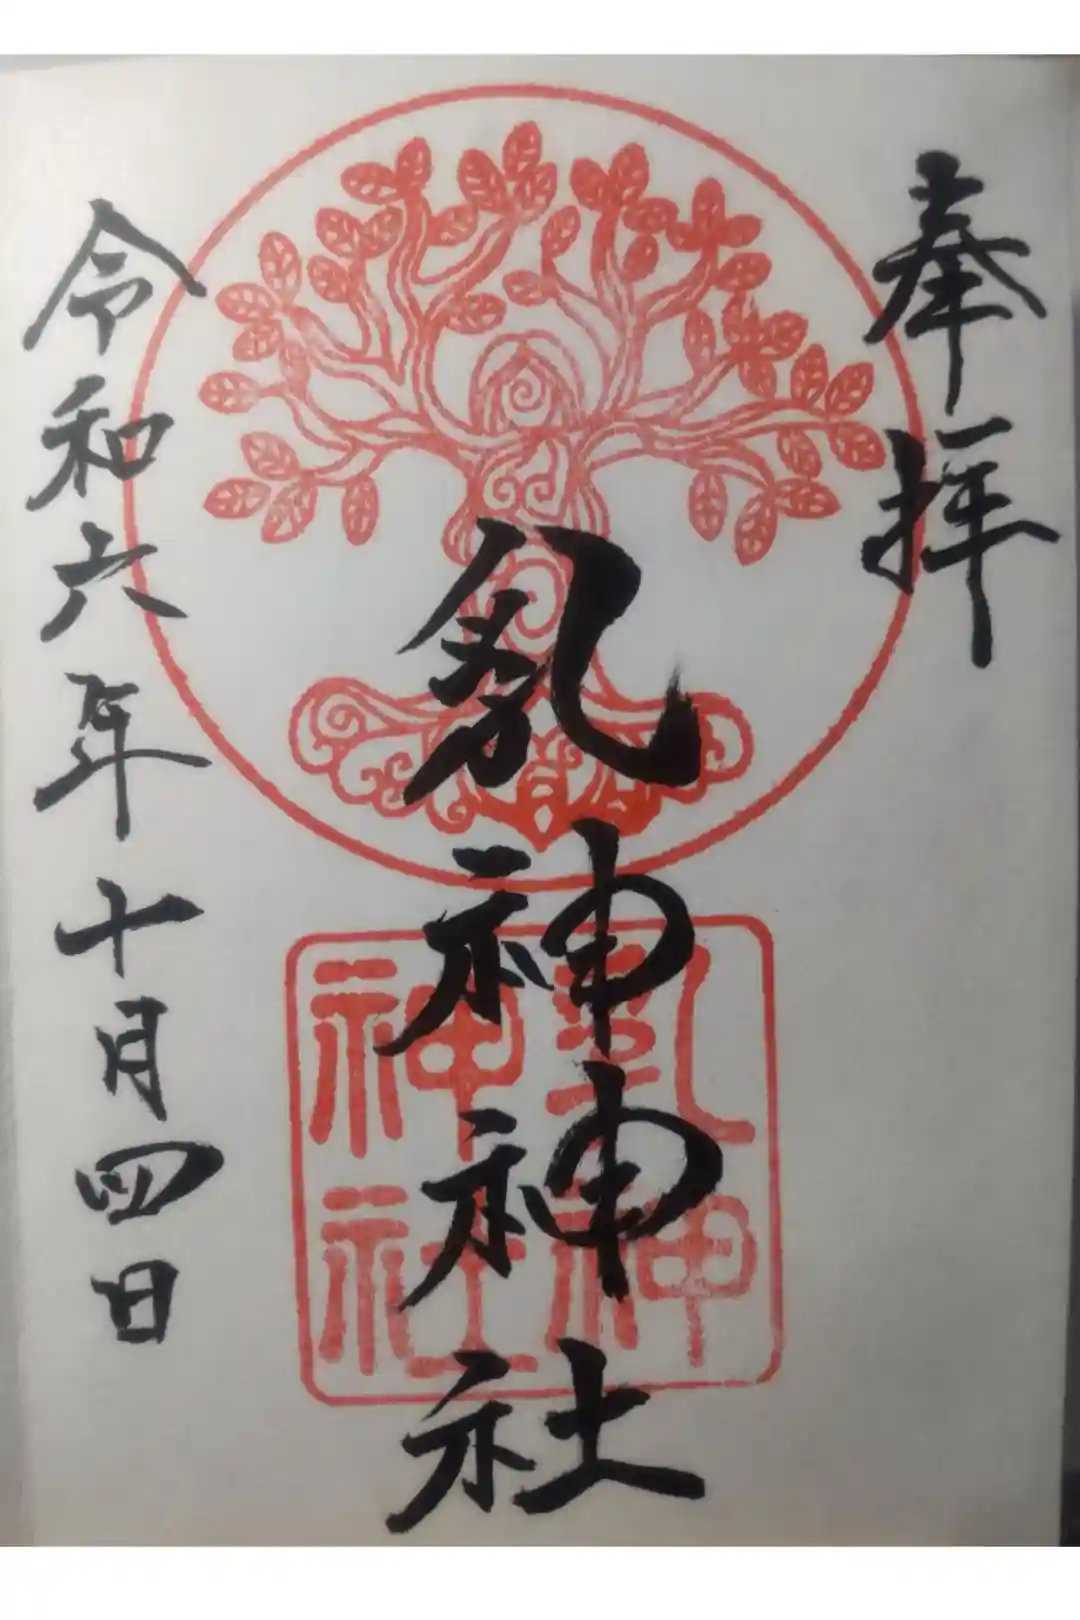 奉拝
乳神神社
乳神
神社
令和六年十月四日